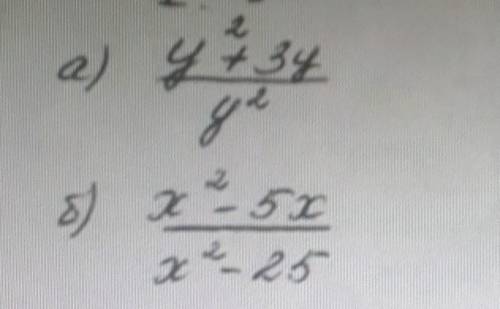 а) (y² + 3y) / y²
б) (x² - 5x) / (x² - 25)